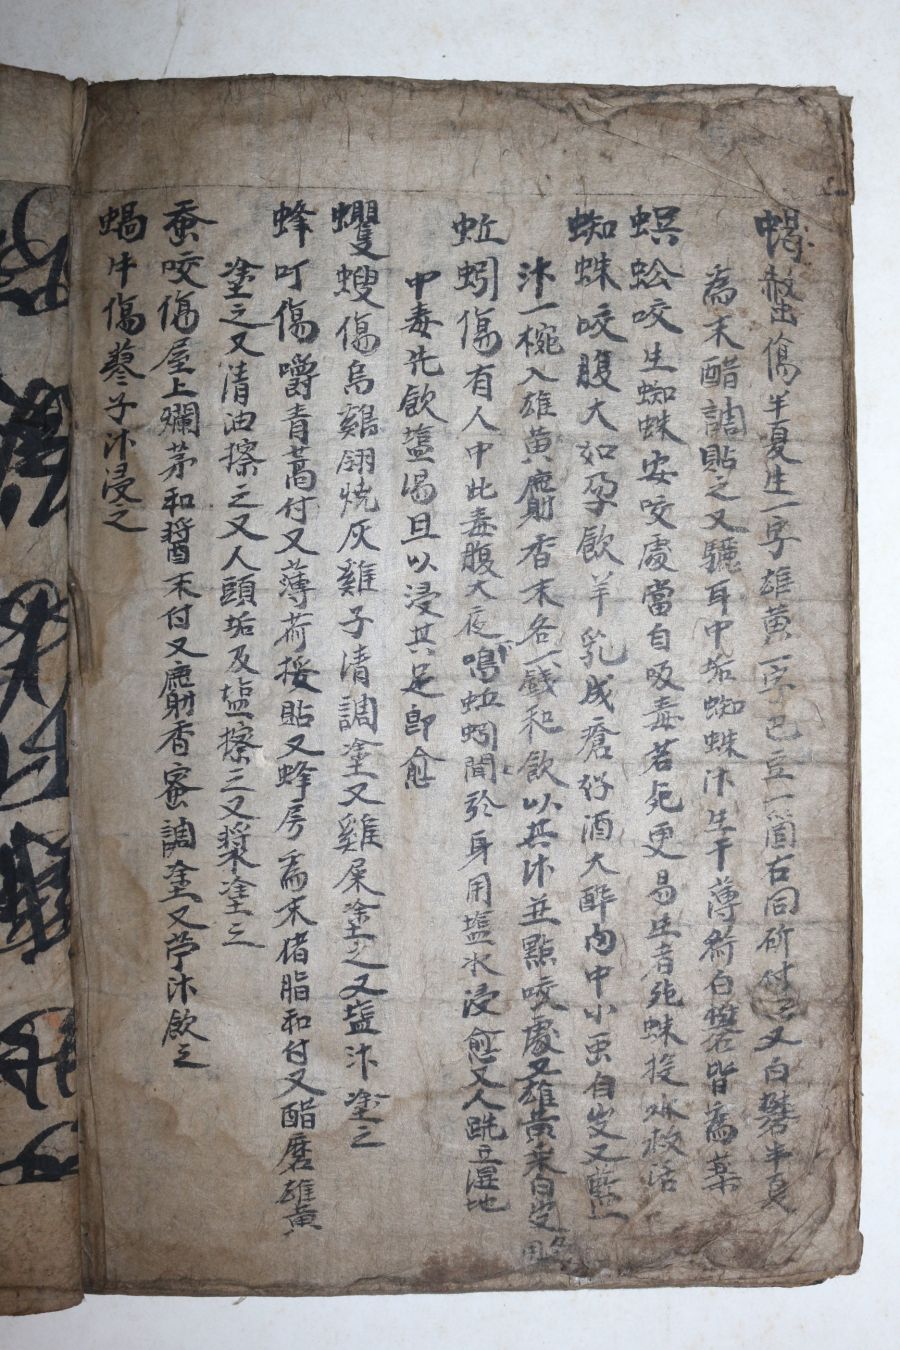 蝎螫傷半夏生一字雄黃一字巴豆一箇右同硏付之又白礬半夏
為末醋調貼之又驢耳中垢蜘蛛汁生干薄荷白礬皆為薬
蜈蚣咬生蜘蛛安咬處當自吸毒若死更易生者死蛛投水救活
蜘蛛咬腹大如孕飮羊乳成瘡好酒大醉肉中小虫自出又藍一
汁一椀入雄黃麝香末各一戔和飮以其汁並點咬處又雄黃末白
蚯蚓傷有人中此毒腹大夜鳴蚯蚓聞於身用塩水浸愈又人跣立湿地
中毒先飮塩湯且以浸其足卽愈
蠼螋傷烏雞翎燒灰雞子清調塗又雞屎塗之又塩汁塗之
蜂叮傷嚼青蒿付又薄荷挼貼又蜂房為末猪脂和付又酢磨雄黃
塗之又清油擦之又人頭垢及塩擦之又漿塗之
蚕咬傷屋上爛茅和醬末付又麝香蜜調塗又苧汁飮之
蝸牛傷蓼子汁浸之